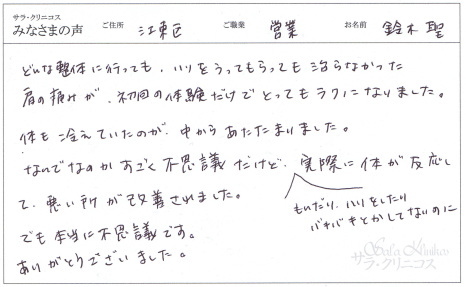 サラ・クリニコス
みなさまの声
ご住所 江東区 ご職業 営業 お名前 鈴木 聖
どんな整体に行っても、ハリをうってもらっても治らなかった
肩の痛みが、初回の体験だけでとってもラクになりました。
体も冷えていたのが、中からあたたまりました。
なんでなのかすごく不思議だけど、実際に体が反応し
て、悪い所が改善されました。
もんだり、ハリをしたり
バキバキとかしてないのに
でも本当に不思議です。
ありがとうございました。
Sala Klinikos
サラ・クリニコス